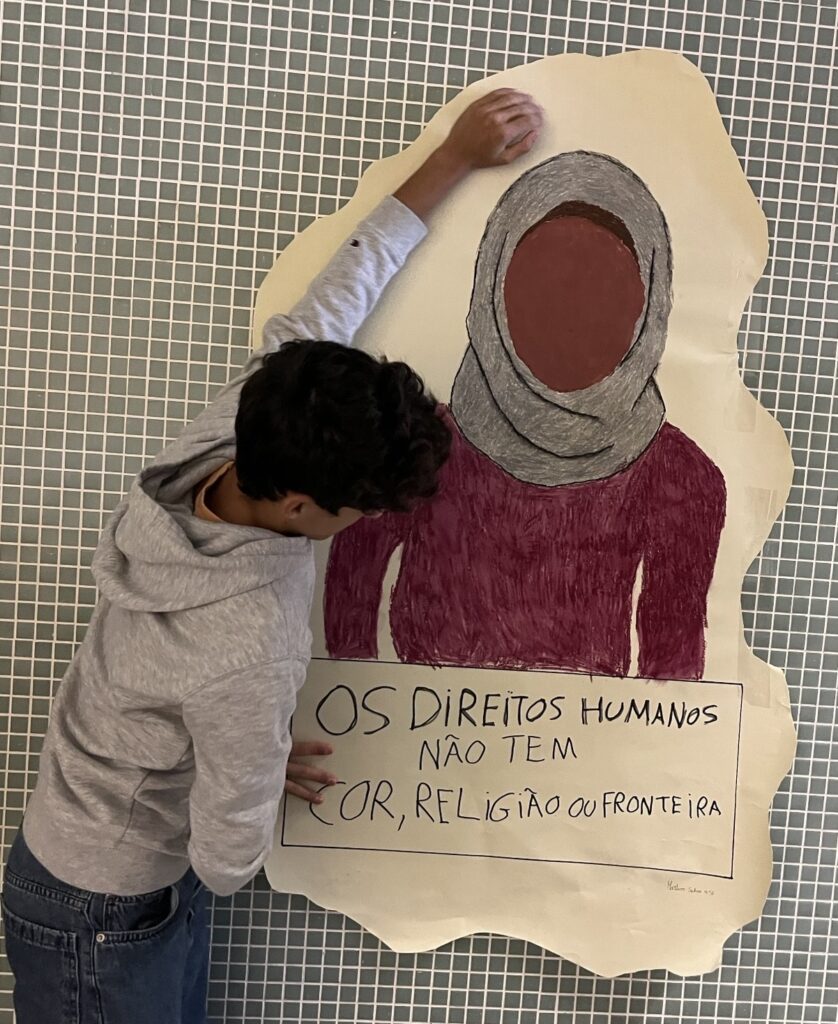 OS DIREITOS HUMANOS
NÃO TEM
COR, RELIGIÃO OU FRONTEIRA